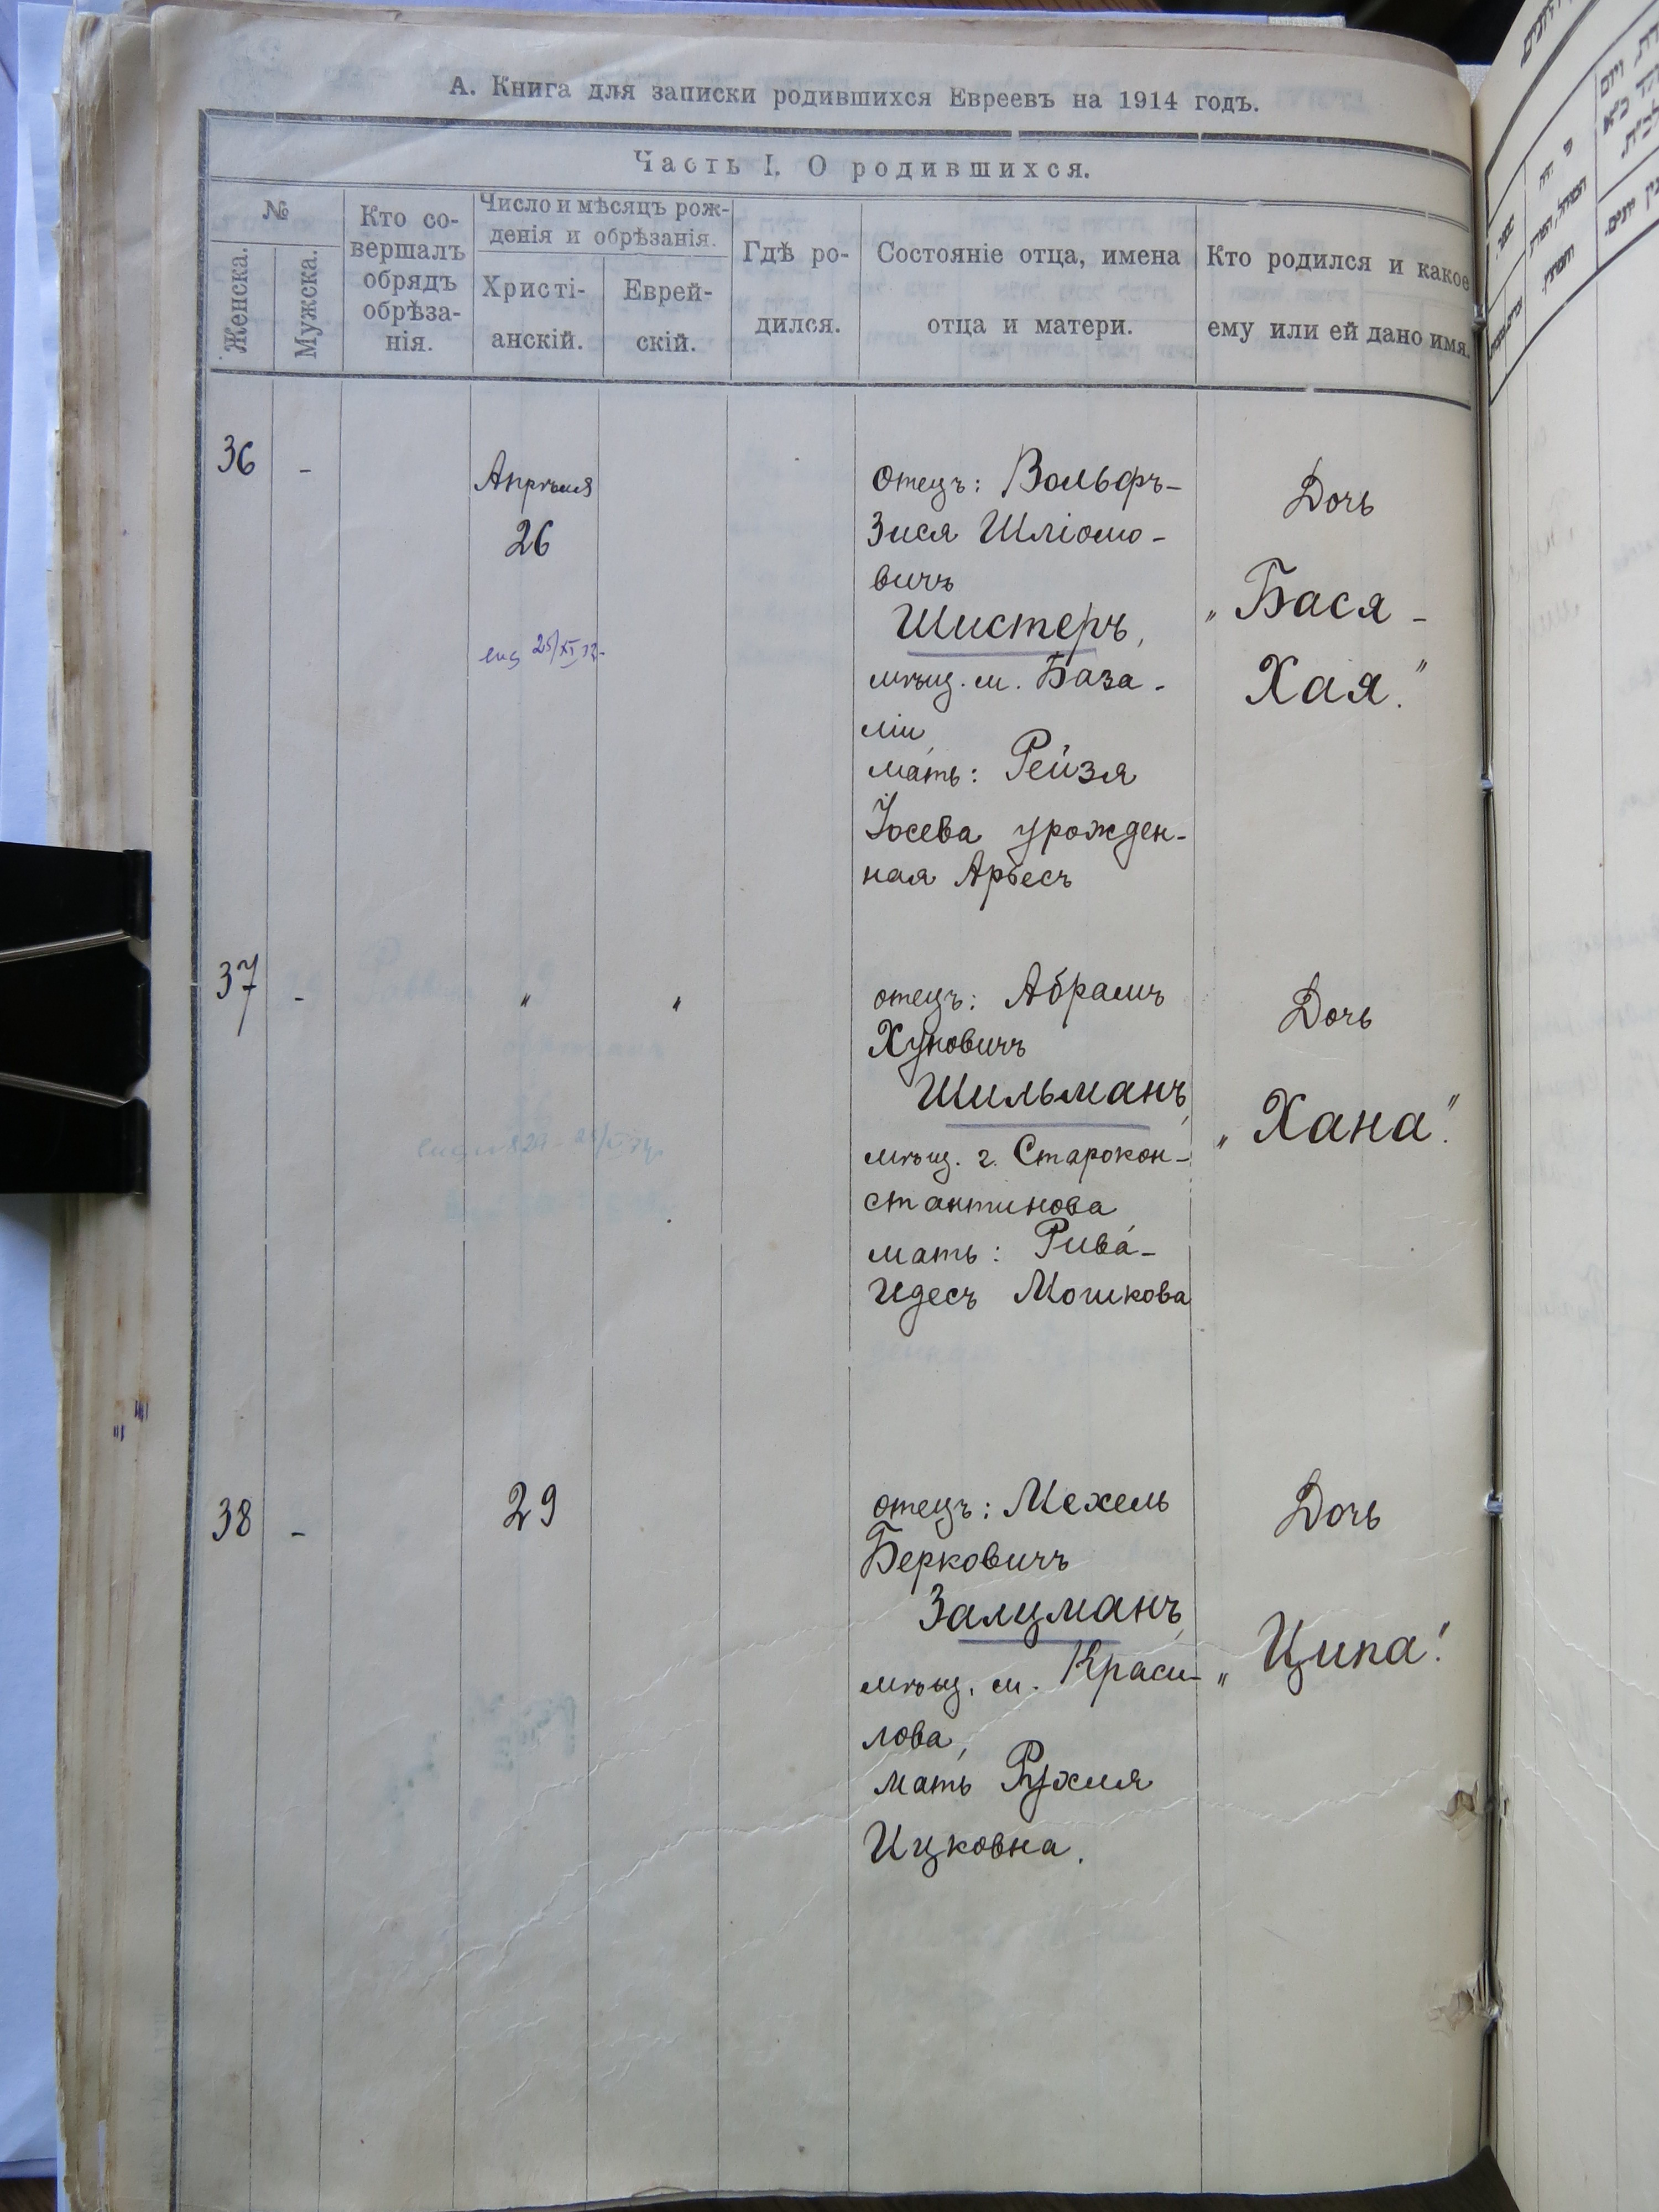 А. Книга для записки родившихся Евреевъ на 1914 годъ.
Часть I. О родившихся.
№
Женска.
Мужска.
Кто со-
вершалъ
обрядъ
обрѣза-
нія.
Число и мѣсяцъ рож-
денія и обрѣзанія.
Христі-
анскій.
Еврей-
скій.
Гдѣ ро-
дился.
Состояніе отца, имена
отца и матери.
Кто родился и какое
ему или ей дано имя.
36 -
Апрѣля
26
отецъ: Вольфъ-
Зися Шліомо-
вичъ
Шистеръ,
мѣщ. м. База-
ліи,
мать: Рейзя
Іосева урожден-
ная Арбесъ
Дочь
„Бася-
Хая."
37 - " "
отецъ: Абрамъ
Хуновичъ
Шильманъ,
мѣщ. г. Старокон-
стантинова,
мать: Рива-
Идесъ Мошкова
Дочь
„Хана".
38 -
29
отецъ: Мехель
Берковичъ
Залцманъ,
мѣщ. м. Краси-
лова,
мать Рухля
Ицковна.
Дочь
„Ципа".